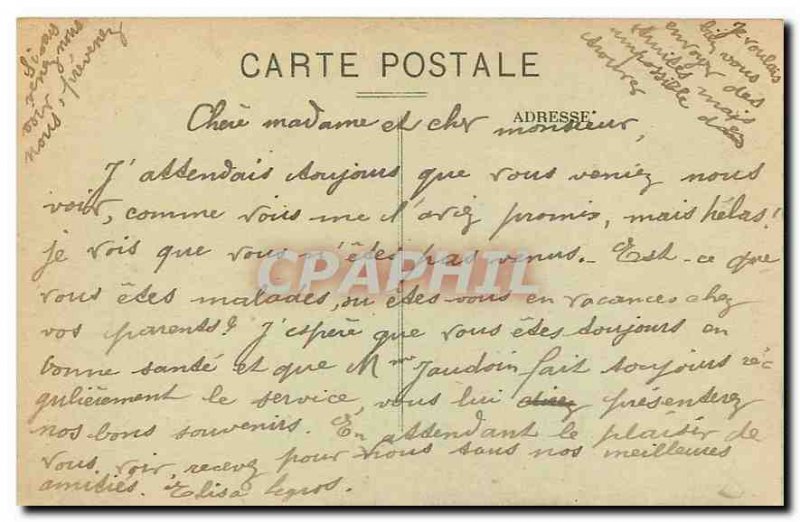 CARTE POSTALE
ADRESSE
Si vous
venez nous
voir
nous prévenez
Je voulais
bien vous
envoyer des
mais
impossible d'en
trouver
Chère madame et cher monsieur,
J'attendais toujours que vous veniez nous
voir, comme vous me l'aviez promis, mais hélas!
je vois que vous n'êtes pas venus. Est-ce que
vous êtes malades, ou êtes-vous en vacances chez
vos parents? J'espère que vous êtes toujours en
bonne santé et que Mme Jaudoin fait toujours ré-
gulièrement le service, vous lui présenterez
nos bons souvenirs. En attendant le plaisir de
vous voir, recevez pour vous tous nos meilleures
amitiés. Elisa Legros.
CPAPHIL